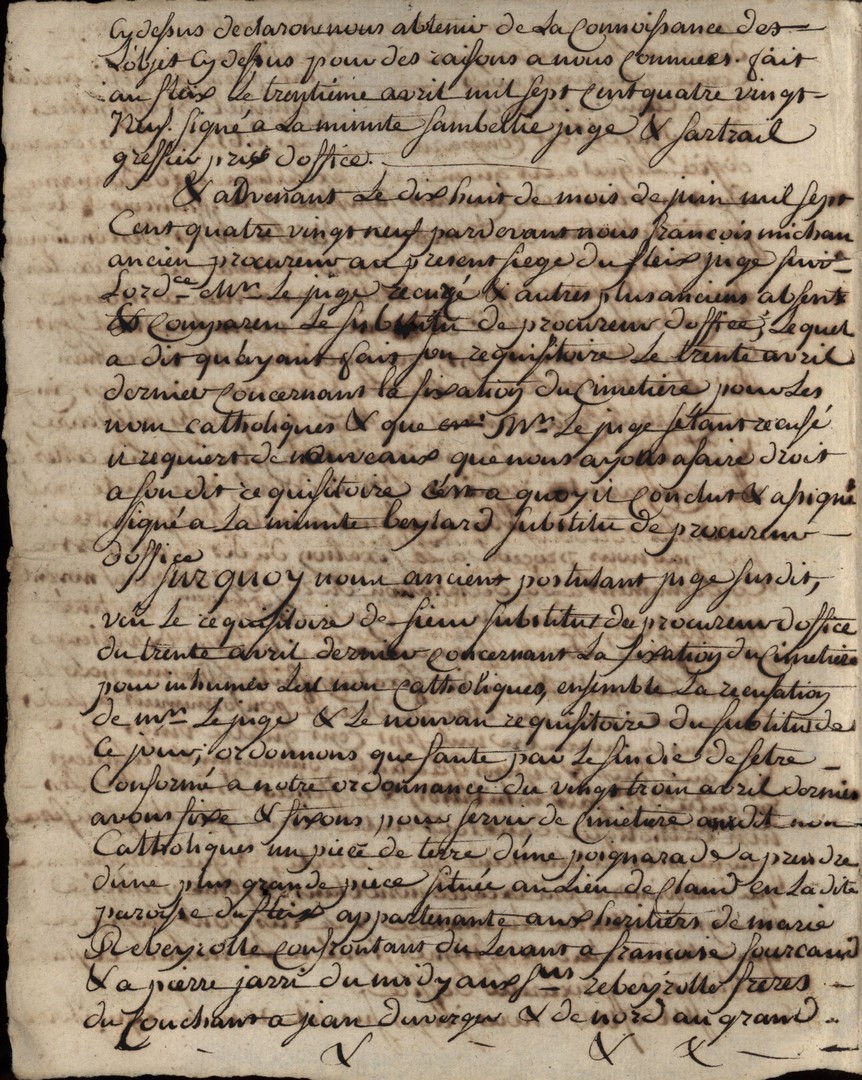 cydessus declarons nous abtenir de La Connoissance des
L'objet cydessus pour des raisons a nous Connues. fait
au fleix Le trentième avril mil sept Cent quatre vingt
Neuf. signé a La minute Sambellie juge & sartrail
greffier pris d'office.
& advenant Le dix huit de mois de juin mil sept
Cent quatre vingt neuf pardevant nous françois michau
ancien procureur au present siege du fleix juge suiv.
Lord.ce Mr. Le juge recuzé & autres plus anciens absent
& Comparen Le Substitu de procureur d'office, Lequel
a dit qu'ayant fait son requisitoire Le trente avril
dernier Concernant la fixation du Cimetière pour Les
nom Catholiques & que Mr. Le juge s'étant recusé
il requiert de nouveaux que nous ayons a faire droit
a son dit requisitoire c'est a quoy il Conclut & a signé
signé a La minute beylard substitu de procureur
d'office
Sur quoy nous ancient postulant juge susdit,
veu Le requisitoire de sieur substitut de procureur d'office
du trente avril dernier Concernant La fixation du Cimetière
pour inhumer Les non Catholiques, ensemble La recusation
de mr. Le juge & Le nouvau requisitoire du substitu de
Ce jour; ordonnons que faute par Le sindic de s'etre
Conformé a notre ordonnance du vingt trois avril dernier
avons fixe & fixons pour servir de Cimetière audit non
Catholiques un pièce de terre d'une poignarade a prendre
d'une plus grande pièce située au lieu de Claud en La dite
paroisse du fleix appartenante aux heritiers de marie
Rebeyrolle Confrontant du Levant a francoise fourcaud
& a pierre jarri du midy aux srs rebeyrolle freres
du Couchant a jean duverger & de nord au grand
& & &